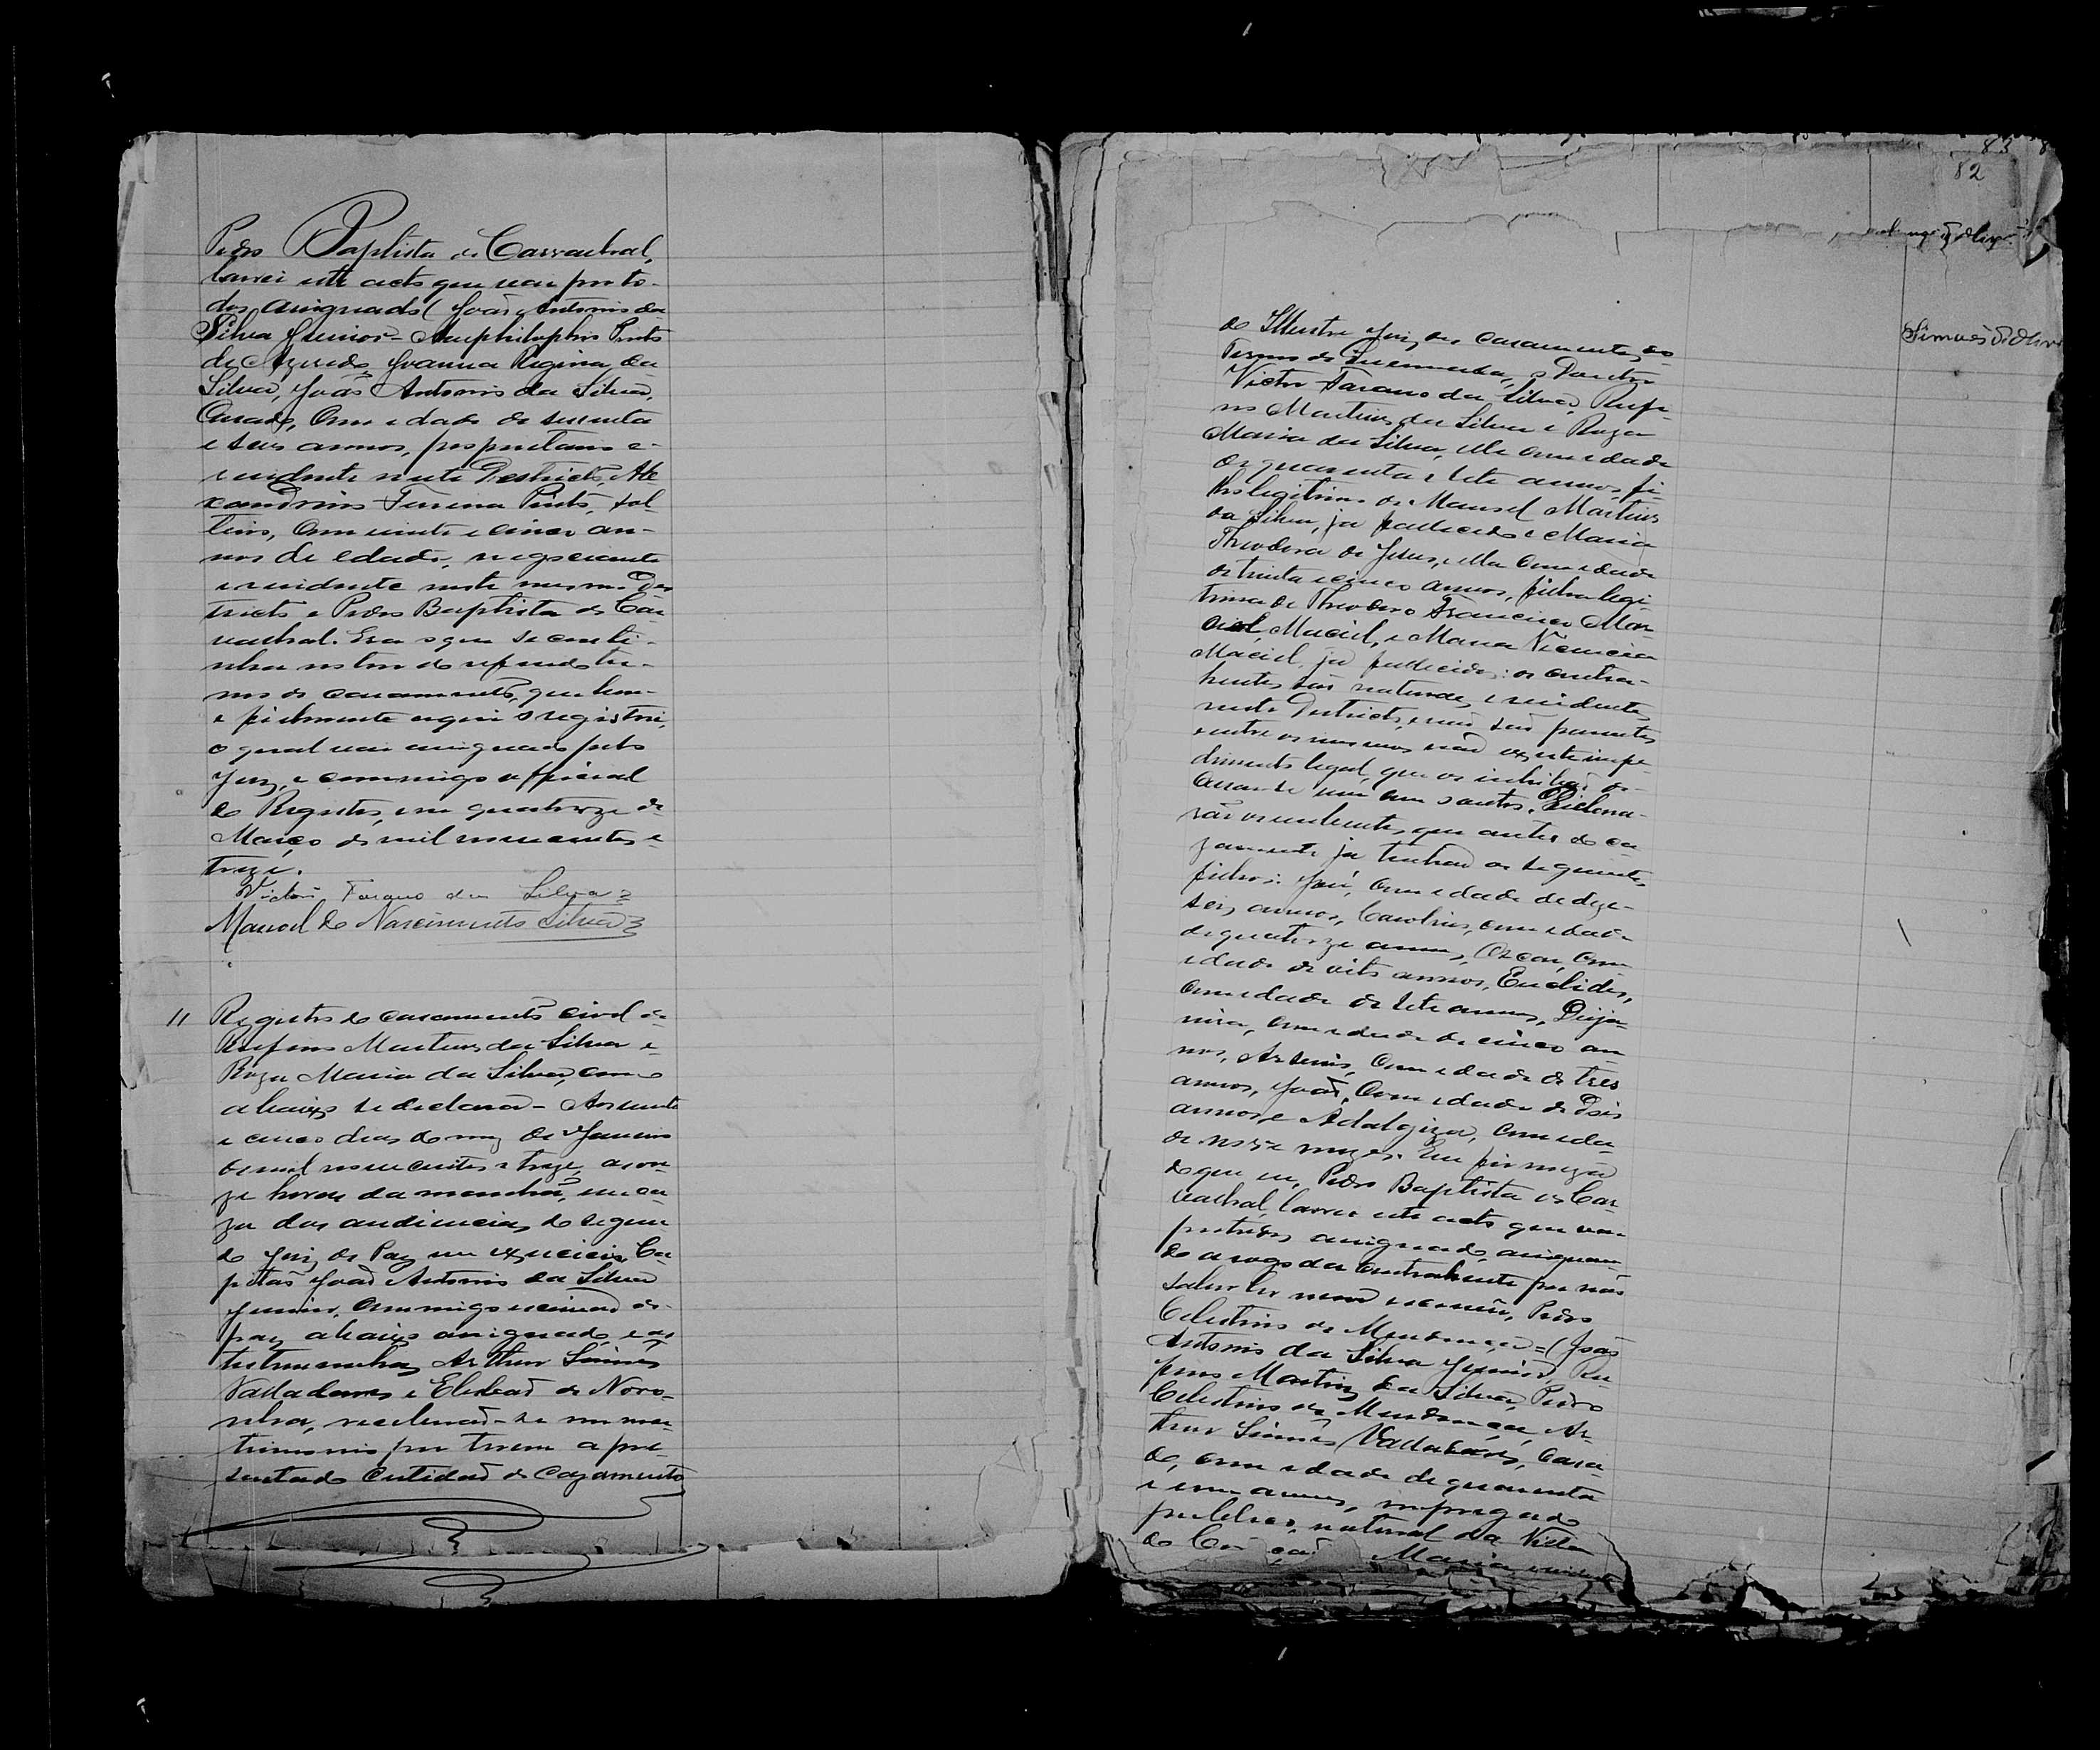 Pedro Baptista de Carvalhal,
lavrei este acto que vai por to-
dos assignado (João Antonio da
Silva Junior - Amphilophio Pinto
de Azeredo, Joanna Regina da
Silva, João Antonio da Silva,
Casado, com edade de sessenta
e seis annos, proprietario e
residente neste Destricto, Ale
xandrino Ferreira Pinto, sol-
teiro, com vinte e cinco an-
nos de edade, negociante
e residente neste mesmo Des
tricto e Pedro Baptista de Car
valhal. Era o que se conti-
nha no teor do referido ter-
mo de casamento, que bem
e fielmente aqui o registrei,
o qual vai assignado pelo
Juiz, e commigo official
do Registro, em quatorze de
Março de mil novecentos e
treze.
Victor Farano da Silva
Manoel do Nascimento Silva
11 Registro do casamento civil de
Rufino Martins da Silva e
Roza Maria da Silva, como
abaixo se declara - Aos vinte
e cinco dias do mez de Janeiro
de mil novecentos e treze, as on
ze horas da manhã, em ca
za das audiencias do segun
do Juiz de Paz em exercicio, Ca
pitão João Antonio da Silva
Junior, commigo escrivão de
paz abaixo assignado, e as
testemunhas Arthur Simões
Valladares e Elesbão de Noro-
nha, receberão-se em ma
trimonio por terem apre
sentado certidão de cazamento
83
82
Simões d'Olivr
do Illustre Juiz dos casamentos do
Termo de Doutor
Victor Farano da Silva, Rufi
no Martins da Silva e Roza
Maria da Silva, elle com edade
de quarenta e sete annos, fi-
lho legitimo de Manoel Martins
da Silva, ja fallecido e Maria
Theodora de Jesus, ella com edade
de trinta e cinco annos, filha legi-
tima de Theodoro Francisco
Maciel, e Maria Vicencia
Maciel, ja fallecidos: os contra-
hentes são naturaes, e residentes
neste Destricto, e não são parentes
entre os mesmos não existe impe-
dimento legal, que os inhibão de
casar-se um com o outro. Declara-
rão os nubentes, que antes do ca-
zamento ja tinhão os seguintes
filhos: José, com edade de deze-
seis annos, Carolina, com edade
de quatorze annos, Oscar, com
edade de oito annos, Euclides,
com edade de sete annos, Deja-
nira, com edade de cinco an
nos, Arsenio, com edade de tres
annos, João, com edade de dois
annos e Adalgiza, com eda-
de de onze mezes. Em firmeza
do que eu, Pedro Baptista de Car
valhal, lavrei este acto que vai
por todos assignado, assignan-
do a rogo da contrahente por não
saber ler nem escrever, Pedro
Celestino de Mendonça = (João
Antonio da Silva Junior, Ru
fino Martins da Silva, Pedro
Celestino de Mendonça, Ar-
thur Simões Valladares, casa-
do, com edade de quarenta
e um annos, empregado
publico, natural da Villa
do Maria, residente